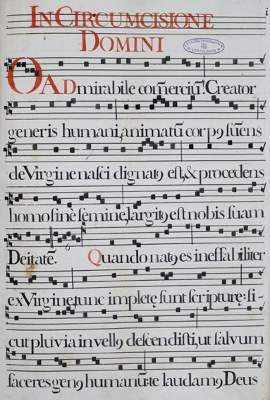 In Circumcisione
Domini
i
O Admirabile com̄erciū! Creator
generis humani, animatū corpꝯ sūens
de Virgine nasci dignatꝯ est, & procedens
homo sine semine, largitꝯ est nobis suam
Deitatē. Quando natꝯ es ineffabiliter
ex Virgine, tunc impletę sunt scripturę: si-
cut pluvia in vellꝯ descendisti, ut salvum
faceres genꝯ humanū: te laudamꝯ Deus